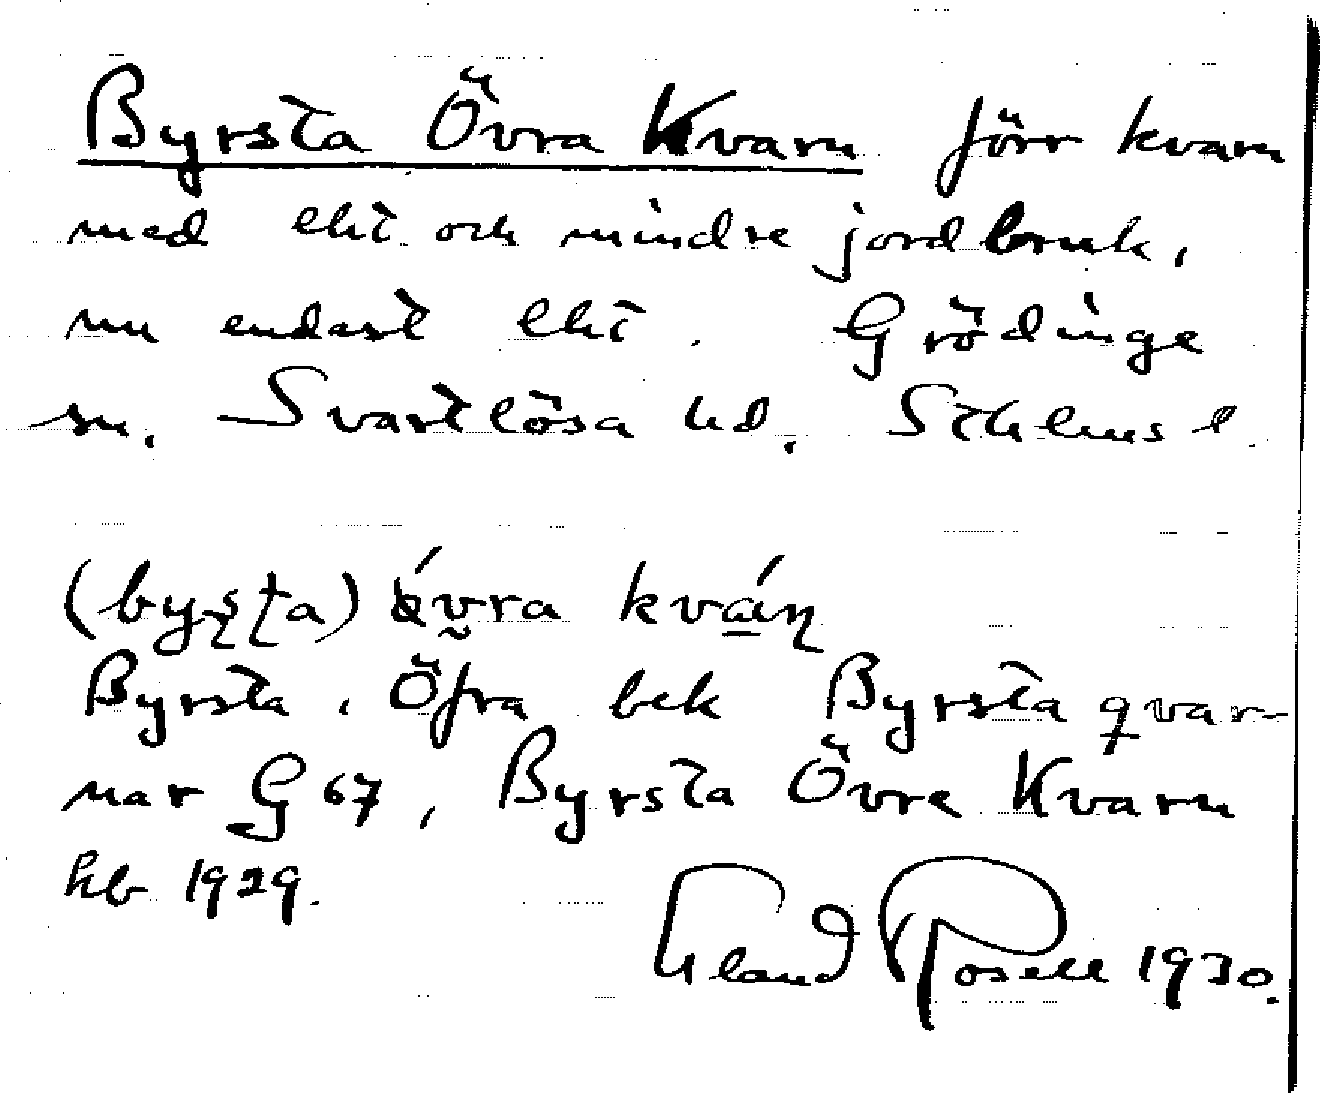 Byrsta Övra Kvarn förr kvarn
med eht och mindre jordbruk,
nu endast eht. Grödinge
sn. Svartlösa hd. Sthlms l.
(byʂʈa) v̰ra kvá̱ɳ
Byrsta, Öfra bek Byrsta qvar-
nar G 67, Byrsta Övre Kvarn
hb 1929.
Rosell 1930.